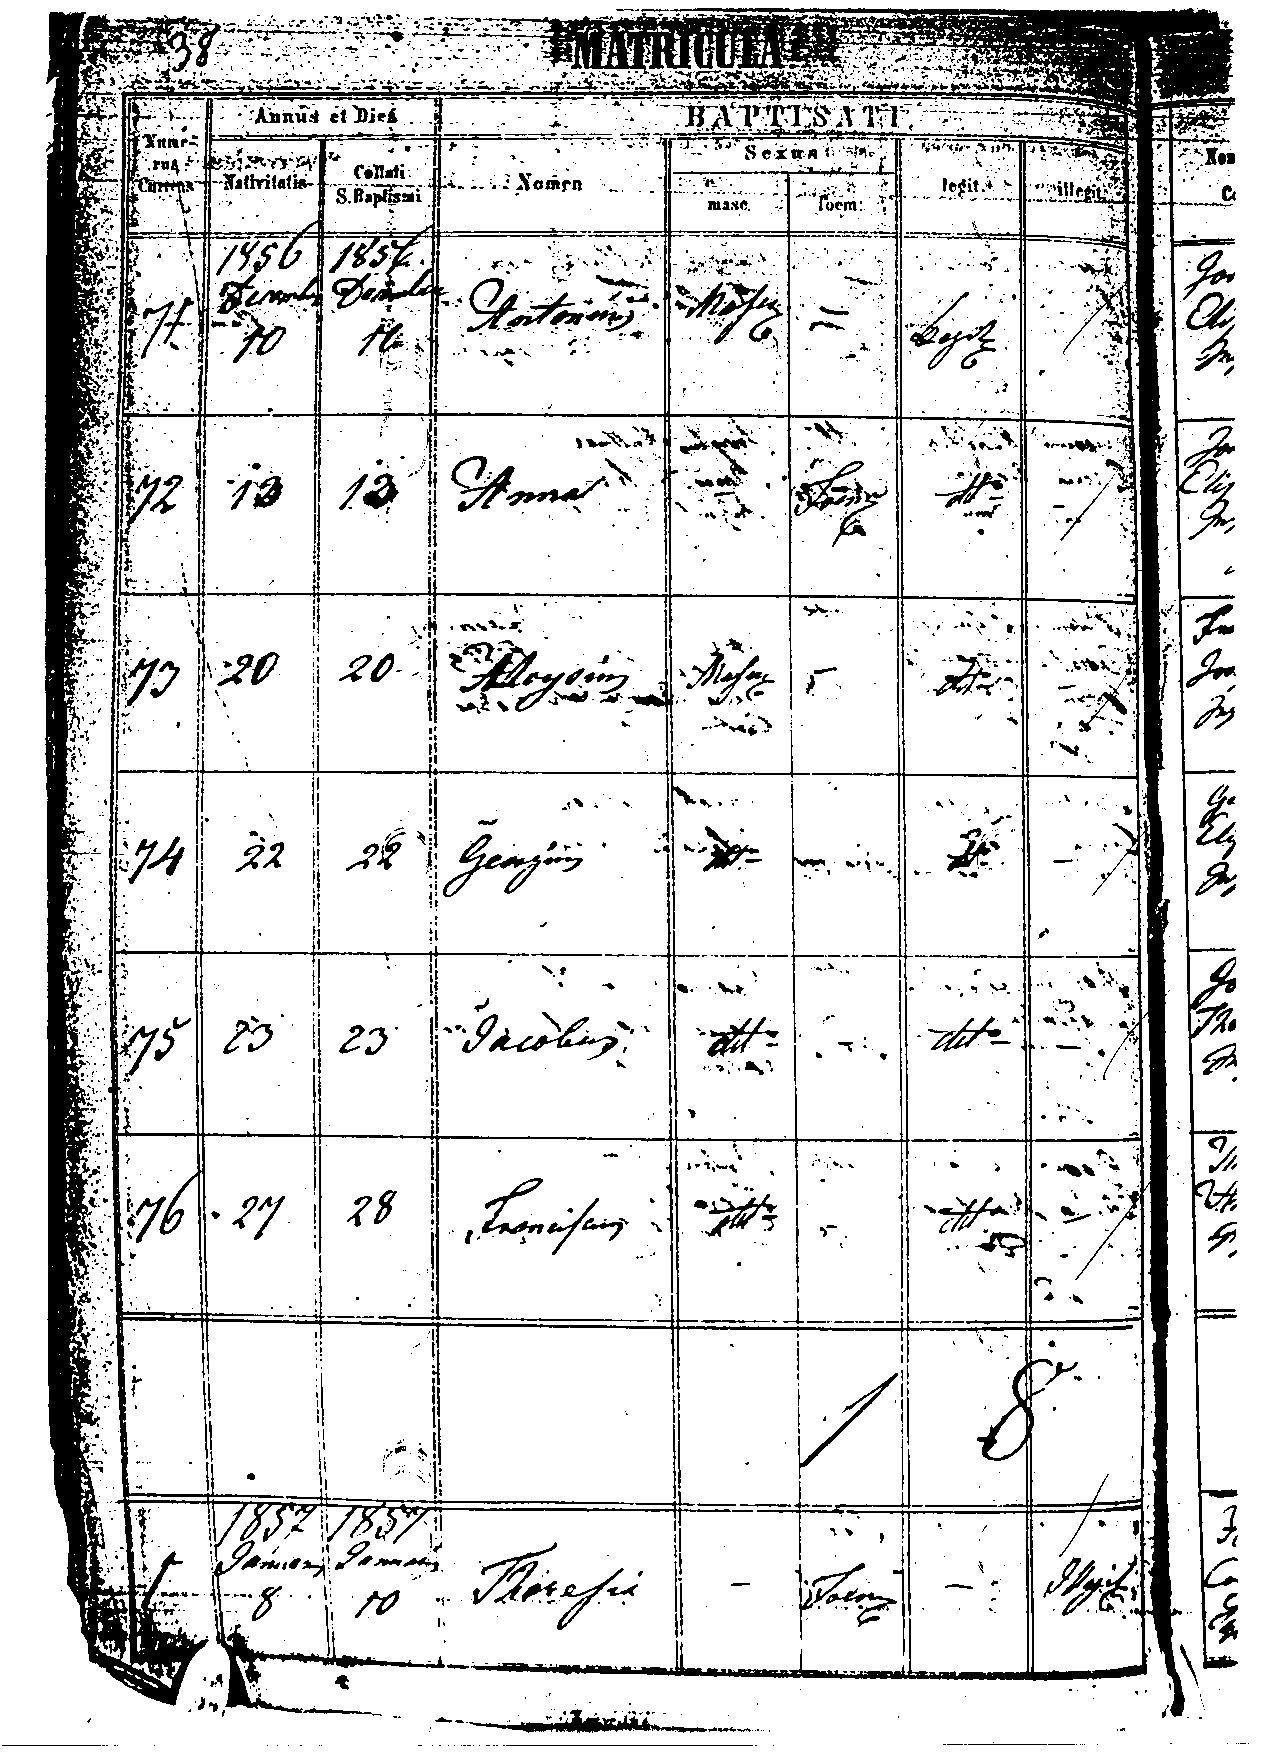 38
MATRICULA
Nume-
rus
Currens
Annus et Dies
Nativitatis
Collati
S. Baptismi
BAPTISATI
Nomen
Sexus
masc.
foem.
legit.
illegit.
1856 1856
Decembr Decembr
71 10 11 Antonius Masc — Legit
72 13 13 Anna Foem dtto —
73 20 20 Aloysius Masc — dtto
74 22 22 Georgius dtto dtto —
75 23 23 Jacobus dtto — dtto —
76 27 28 Franciscus dtto - dtto —
1857 1857
Januar Januar
1 8 10 Theresia — Foem — Illegit